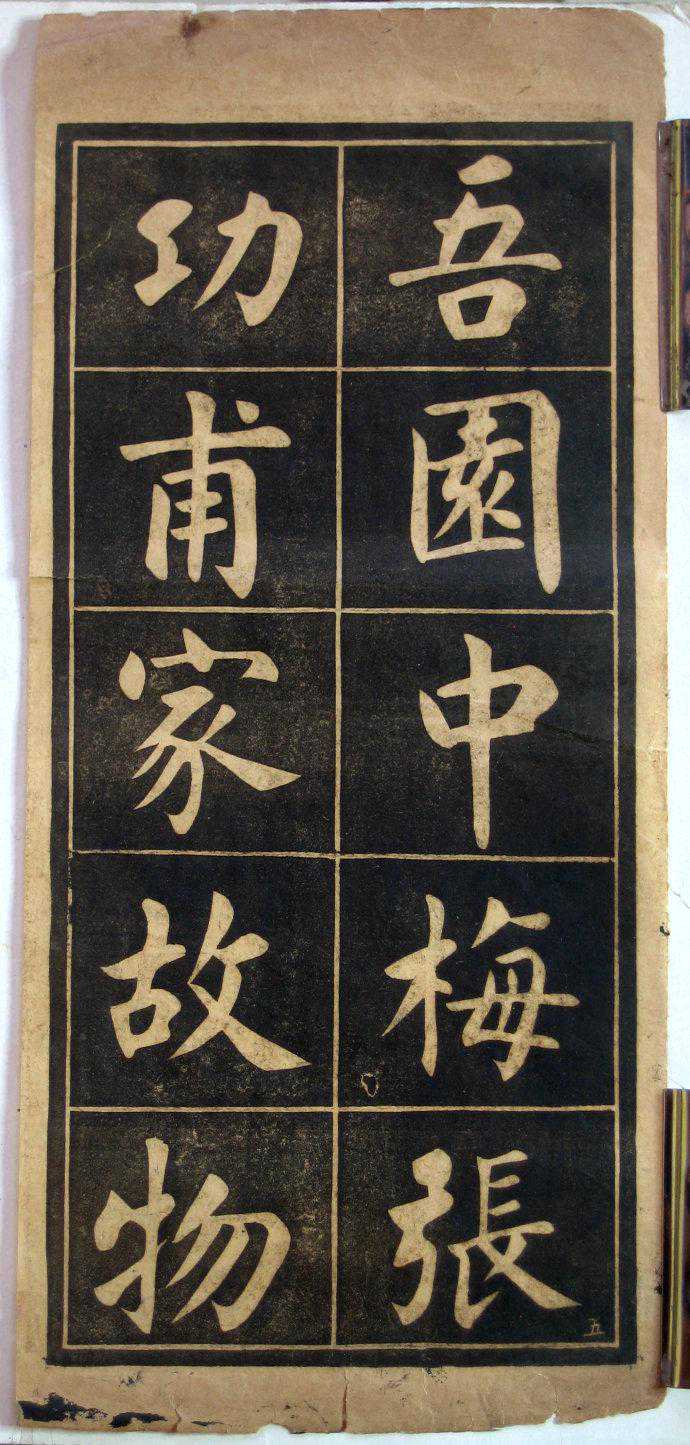 吾園中梅張
功甫家故物
五